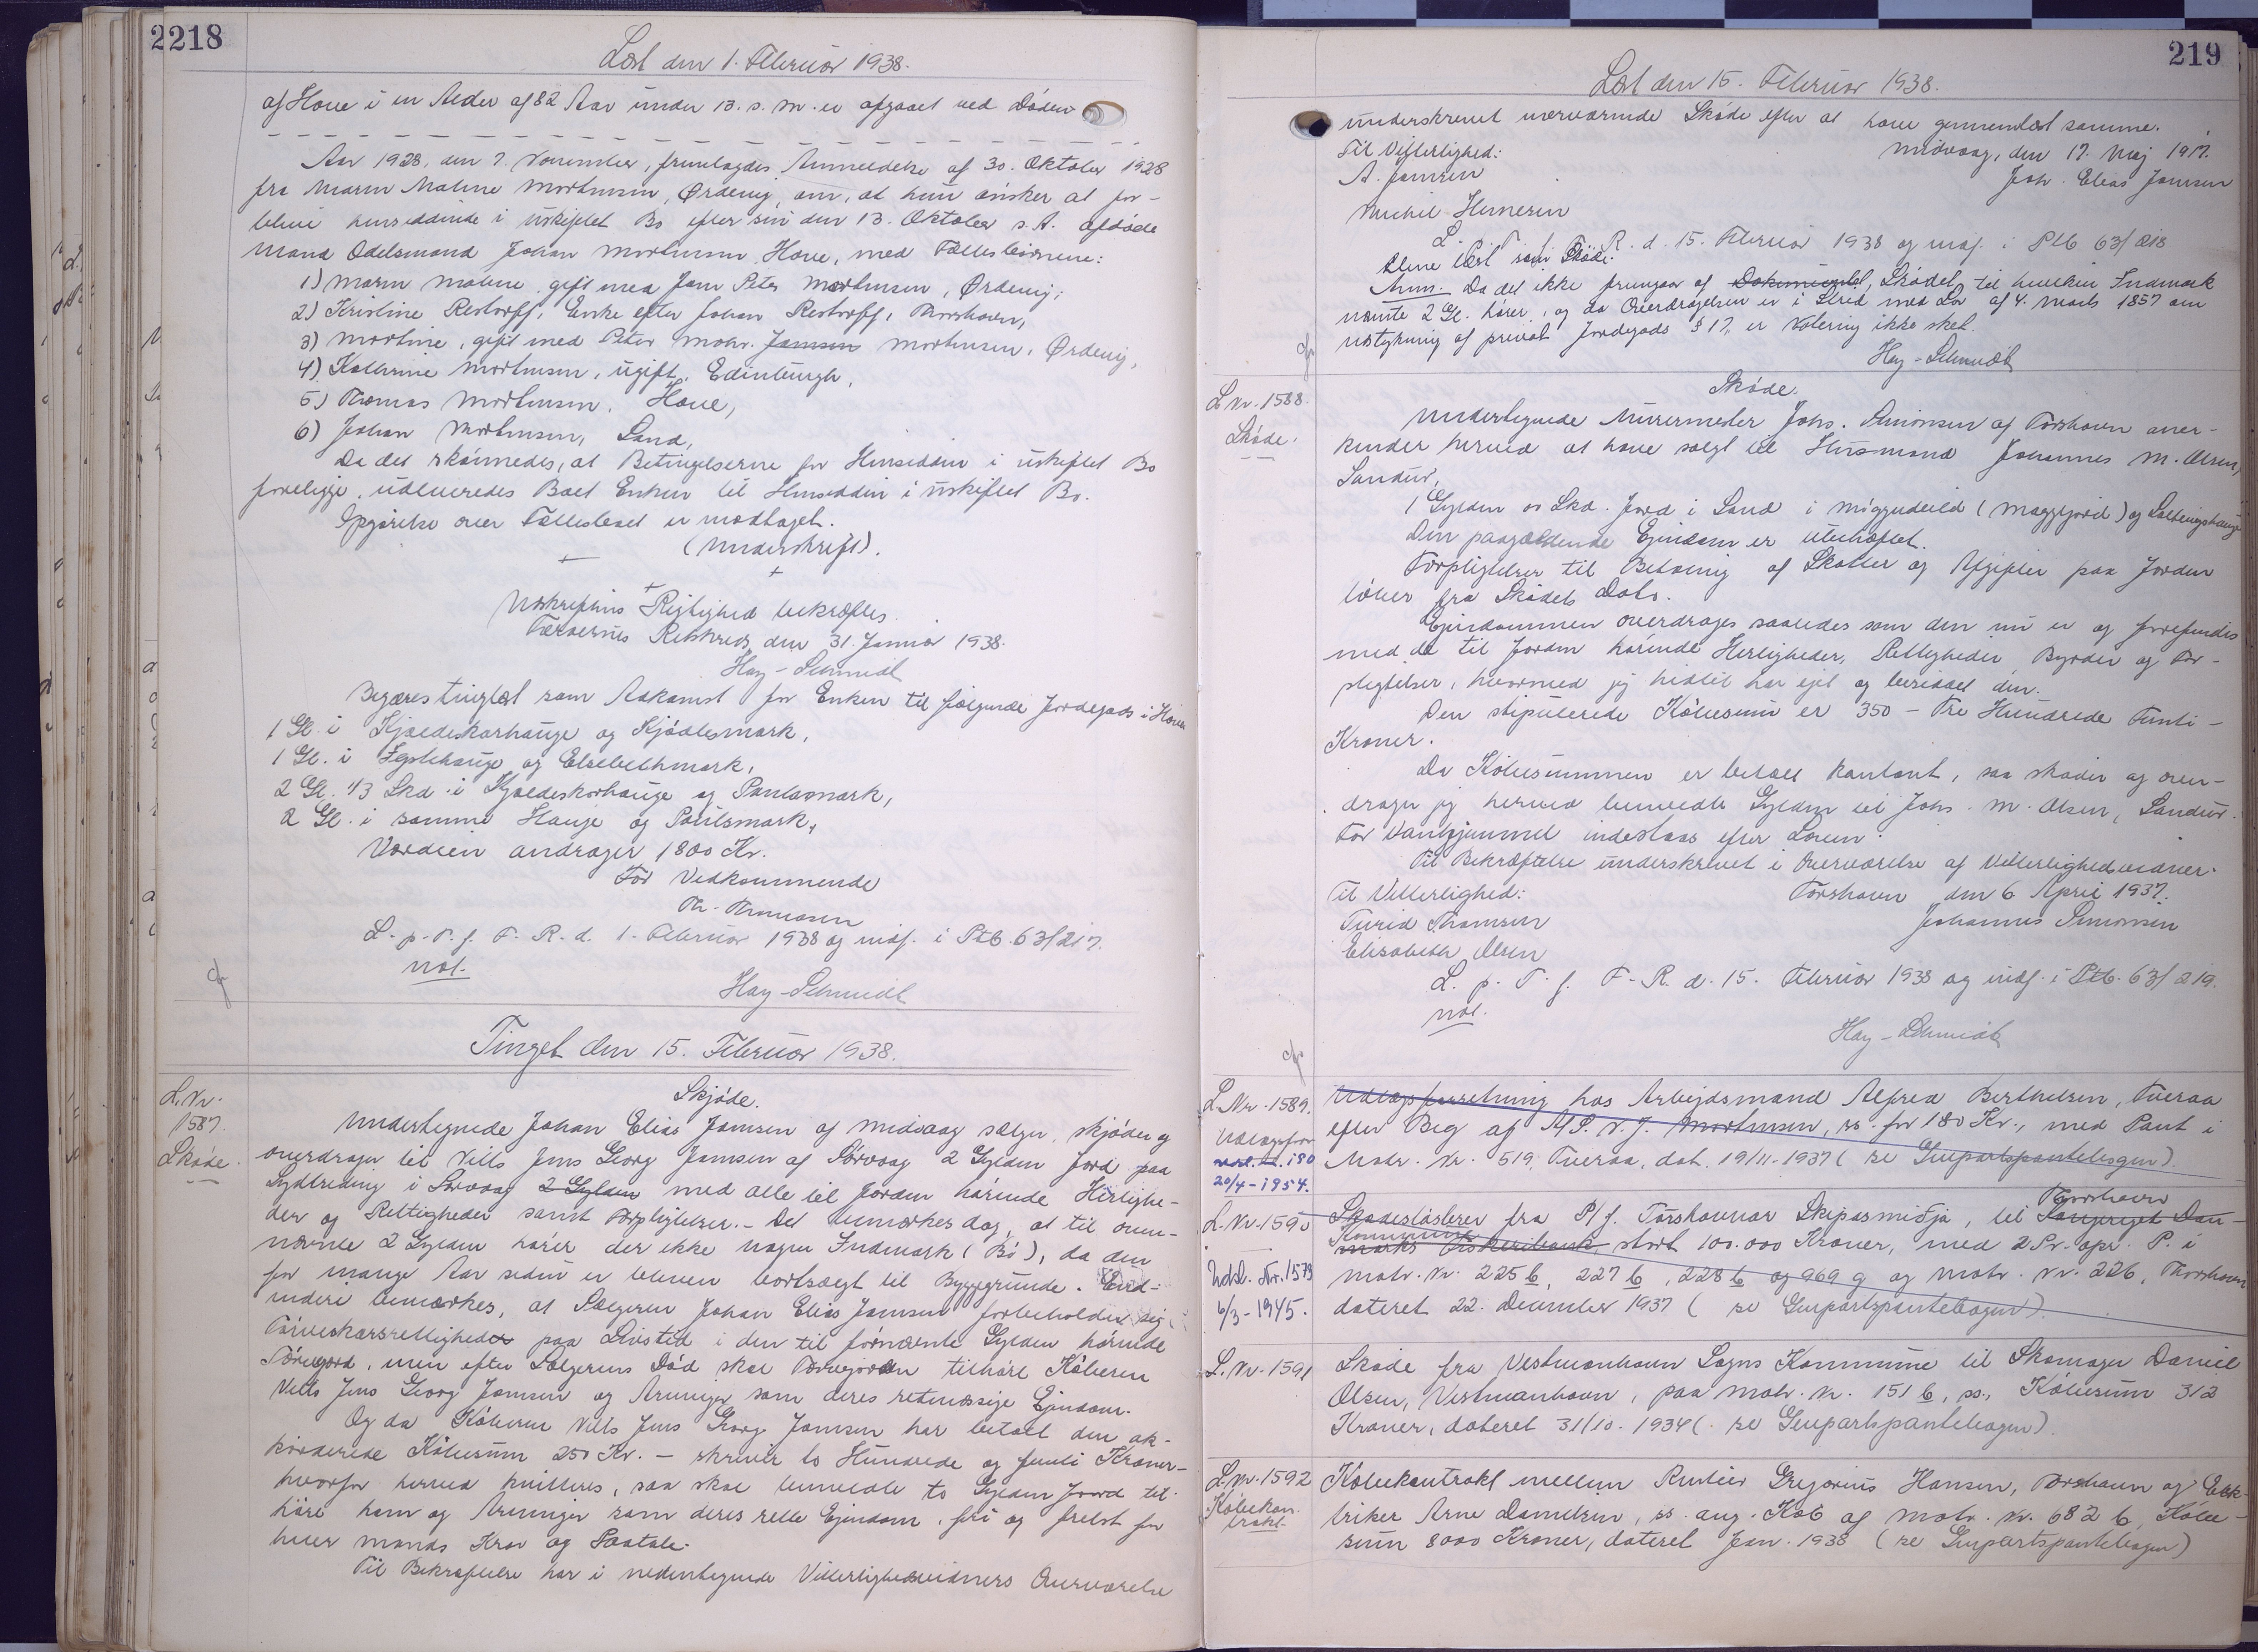 2218
Læst den 1. Februar 1938.
af Hove i en Alder af 82 Aar under 13. s. M. er afgaaet ved Døden
Aar 1928, den 7. November, fremlagdes Anmeldelse af 30. Oktober 1928
fra Maren Malene Mortensen, Ørdevig, om, at hun ønsker at for-
blive hensiddende i uskiftet Bo efter sin den 13. Oktober s. A. afdøde
Mand Odelsmand Johan Mortensen, Hove, med Fællesbørnene:
1) Maren Malene, gift med Jens Peter Mortensen, Ørdevig,
2) Kristine Restorff, Enke efter Johan Restorff, Thorshavn,
3) Mortine, gift med Peter Mohr. Jensen Mortensen, Ørdevig,
4) Kathrine Mortensen, ugift, Edinburgh,
5) Thomas Mortensen, Hove,
6) Johan Mortensen, Sand,
Da det skønnedes, at Betingelserne for Hensidden i uskiftet Bo
foreligge, udleveredes Boet Enken til Hensidden i uskiftet Bo.
Opgørelse over Fællesboet er modtaget.
(Underskrift).
Udskriftens Rigtighed bekræftes.
Færøernes Retskreds, den 31. Januar 1938.
Hay-Schmidt
Begæres tinglæst som Adkomst for Enken til følgende Jordegods i Hove:
1 Gl. i Kjældeskorhauge og Kjødlesmark,
1 Gl. i Egstehauge og Elsebethmark,
2 Gl. 1/3 Skd. i Kjældeskorhauge og Paulasmark,
2 Gl. i samme Hauge og Poulsmark,
Værdien andrager 1800 Kr.
For Vedkommende
Th. Thomasen
L. p. T. f. F. R. d. 1. Februar 1938 og indf. i Ptb. 63/217.
not.
Hay-Schmidt
Tinget den 15. Februar 1938.
L. Nr.
1587.
Skøde.
Skjøde.
Undertegnede Johan Elias Jensen af Midvaag sælger, skjøder og
overdrager til Nills Jens Georg Jensen af Sørvaag 2 Gylden Jord paa
Sydtreding i Sørvaag 2 Gylden med alle til Jorden hørende Herlighe-
der og Rettigheder samt Forpligtelser. - Det bemærkes dog, at til oven-
nævnte 2 Gylden hører der ikke nogen Indmark (Bø), da den
for mange Aar siden er bleven bortsolgt til Byggegrunde. End-
videre bemærkes, at Sælgeren Johan Elias Jensen forbeholder sig
Tørveskærsrettigheder paa Livstid i den til førnævnte Gylden hørende
Tørvejord, men efter Sælgerens Død skal Tørvejorden tilhøre Køberen
Nills Jens Georg Jensen og Arvinger som deres retmæssige Ejendom.
Og da Køberen Nills Jens Georg Jensen har betalt den ak-
korderede Købesum 250 Kr. - skriver to Hundrede og femti Kroner -
hvorfor herved kvitteres, saa skal bemeldte to Gylden Jord til-
høre ham og Arvinger som deres rette Ejendom, fri og frelst for
hver Mands Krav og Paatale.
Til Bekræftelse har i nedentegnede Vitterlighedsvidners Overværelse
219
Læst den 15. Februar 1938.
underskrevet nærværende Skøde efter at have gennemlæst samme.
Til Vitterlighed:
Midvaag, den 17. Maj 1917.
A. Jensen
Joh. Elias Jensen
Michel Henesen
L. p. T. f. F. R. d. 15. Februar 1938 og indf. i Ptb 63/218
Alene læst som Skøde.
Anm. Da det ikke fremgaar af Dokumentet, Skødet, til hvilken Indmark
nævnte 2 Gl. hører, og da Overdragelsen er i Strid med Lov af 4. Marts 1857 om
Udstykning af privat Jordegods § 17, er Notering ikke sket.
Hay-Schmidt
L. Nr. 1588.
Skøde.
Skøde.
Undertegnede Murermester Johs. Simonsen af Torshavn aner-
kender herved at have solgt til Husmand Johannes M. Olsen,
Sandur,
1 Gylden 00 Skd. Jord i Sand i Miggudeild (Moggjord) og Saltvigshauge
Den paagældende Ejendom er ubehæftet.
Forpligtelser til Betaling af Skatter og Afgifter paa Jorden
løber fra Skødets Dato.
Ejendommen overdrages saaledes som den nu er og forefindes
med de til Jorden hørende Herligheder, Rettigheder, Byrder og For-
pligtelser, hvormed jeg hidtil har ejet og besiddet den.
Den stipulerede Købesum er 350 - Tre Hundrede Femti -
Kroner.
Da Købesummen er betalt kontant, saa skøder og over-
drager jeg herved bemeldte Gylden til Johs. M. Olsen, Sandur.
For Vanhjemmel indestaas efter Loven.
Til Bekræftelse underskrevet i Overværelse af Vitterlighedsvidner.
Til Vitterlighed:
Torshavn den 6 April 1937.
Turid Thomsen
Johannes Simonsen
Elisabeth Olsen
L. p. T. f. F. R. d. 15. Februar 1938 og indf. i Ptb. 63/219.
not.
Hay-Schmidt
L. Nr. 1589.
Udlægsforr.
20/4-1954.
Udlægsforretning hos Arbejdsmand Alfred Berthelsen, Tveraa
efter Beg af A/S. N. J. Mortensen, ss. for 180 Kr., med Pant i
Matr. Nr. 519, Tveraa, dat. 19/11-1937 (se Genpartspantebogen).
L. Nr. 1590
Udsl. Nr. 1573
6/3-1945.
Skadesløsbrev fra P/f. Tórshavnar Skipasmiðja, til Kongeriget Dan- Thorshavn
marks Fiskeribank, Kommune stort 100.000 Kroner, med 2 Pr. opr. P. i
Matr. Nr. 225 b, 227 b, 228 b og 969 g og Matr. Nr. 226, Thorshavn
dateret 22. December 1937 (se Genpartspantebogen).
L. Nr. 1591
Skøde fra Vestmanhavn Sogns Kommune til Skomager Daniel
Olsen, Vestmanhavn, paa Matr. Nr. 151 b, ss., Købesum 312
Kroner, dateret 31/10-1934 (se Genpartspantebogen).
L. Nr. 1592
Købekon-
trakt
Købekontrakt mellem Rentier Gregorius Hansen, Torshavn og Elek-
triker Arne Danielsen, ss. ang. Køb af Matr. Nr. 682 b, Købe-
sum 8000 Kroner, dateret Jan. 1938 (se Genpartspantebogen)